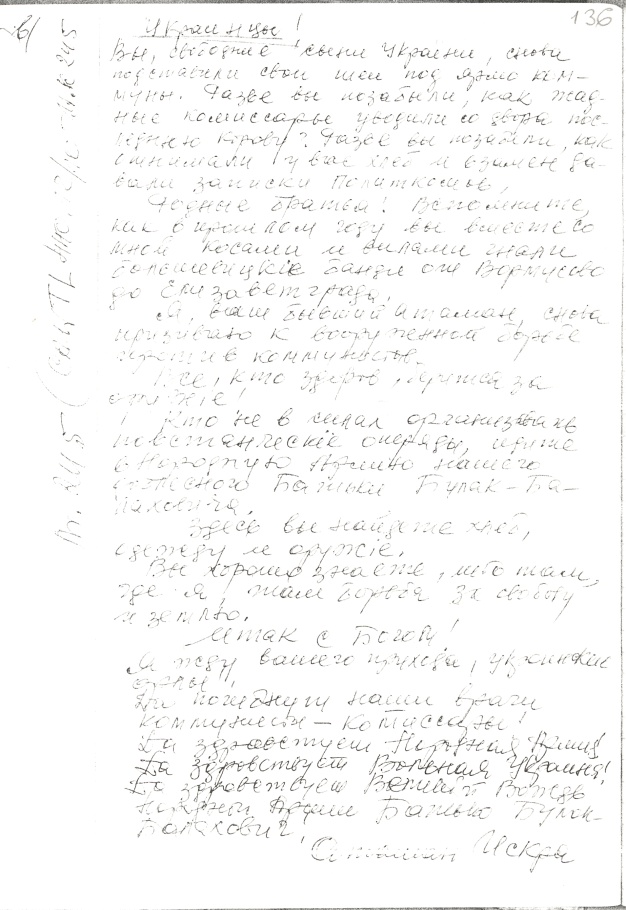 136
Украинцы!
Вы, свободные сыны Украины, снова
подставили свои шеи под ярмо ком-
муны. Разве вы позабыли, как жад-
ные комиссары уводили со двора пос-
леднюю корову? Разве вы позабыли, как
отнимали у вас хлеб и взамен да-
вали записки Политкомов.
Родные братья! Вспомните,
как в прошлом году вы вместе со
мной косами и вилами гнали
большевицкіе банды от
до Елизаветграда.
Я, ваш бывший атаман, снова
призываю к вооруженной борьбе
против коммунистов.
Все, кто здоров, беритесь за
оружіе!
Кто не в силах организовать
повстанческіе отряды, идите
в Народную Армію нашего
Батьки Булак-Ба-
лаховича.
Здесь вы найдете хлеб,
одежду и оружіе.
Вы хорошо знаете, что там,
где я там борьба за свободу
и землю.
Итак с Богом!
Я жду вашего прихода, украинскіе
орлы!
Да погибнут наши враги
коммунисты - комиссары!
Да здравствует Народная Армія!
Да здравствует Вольная Украина!
Да здравствует Великій Вождь
Народной Арміи Батько Булак-
Балахович!
Атаман Искра